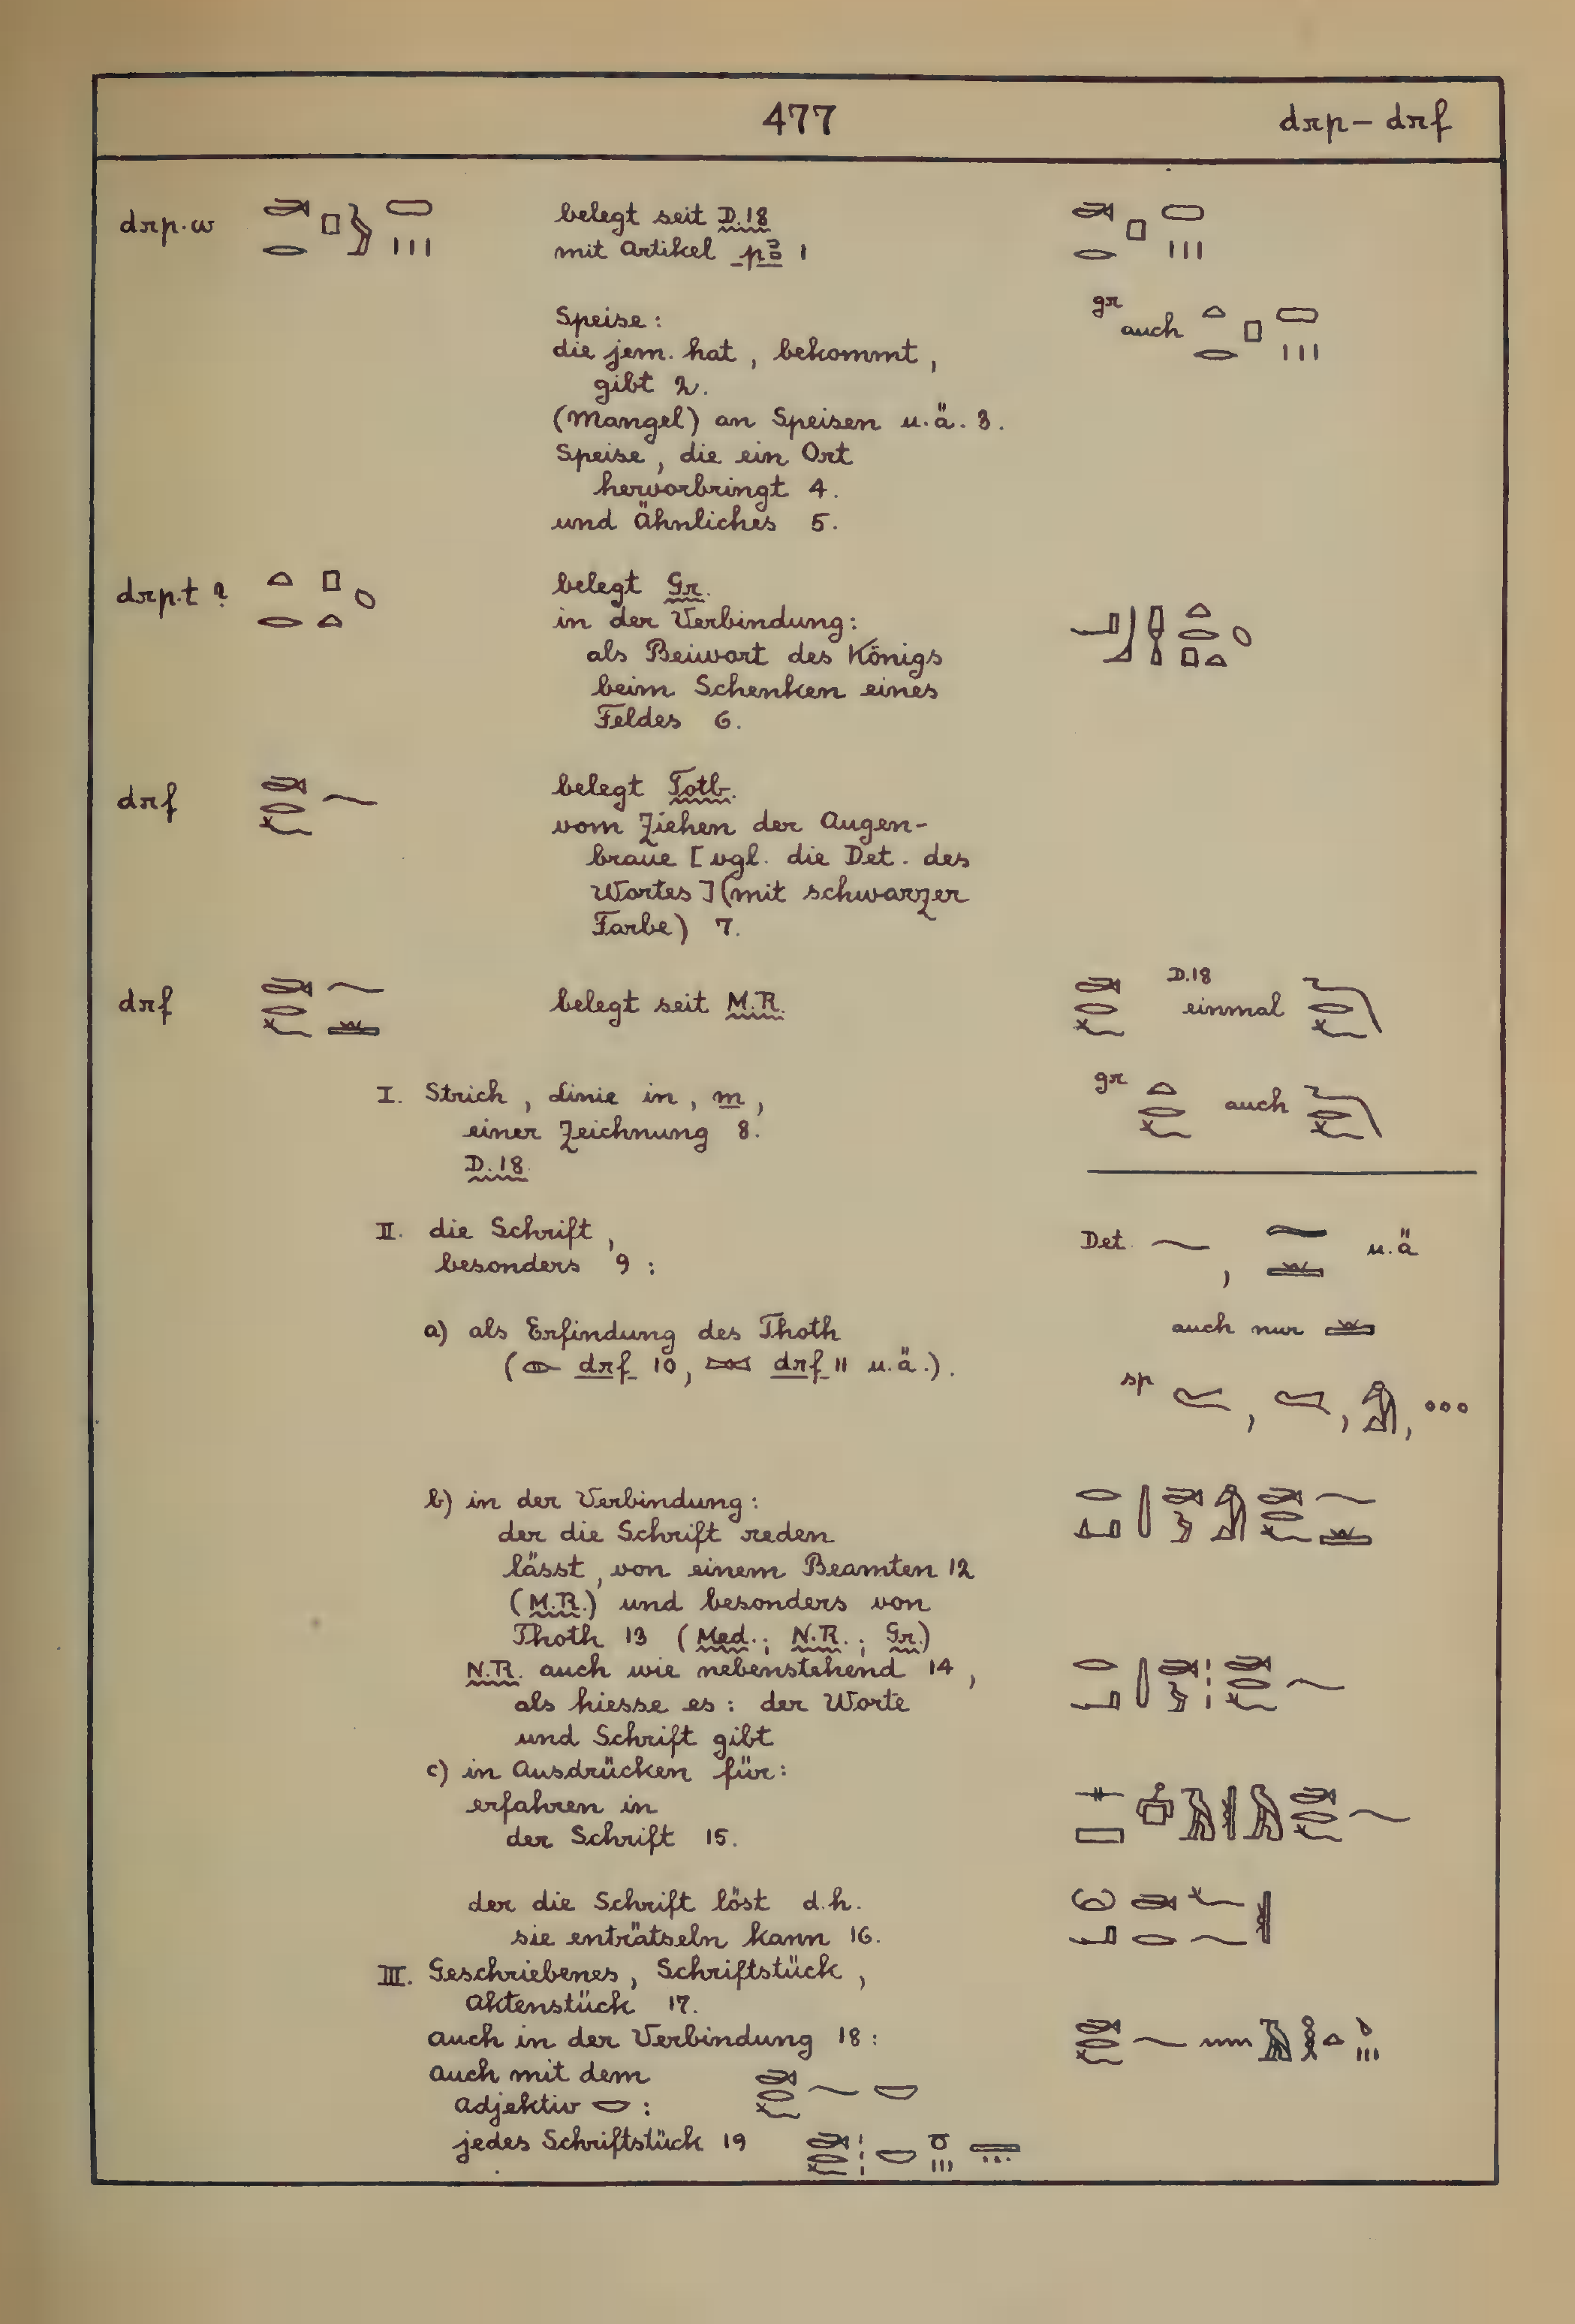 477 drp – drf
drp.w
belegt seit D.18
mit Artikel p3 1
Speise:
die jem. hat, bekommt,
gibt 2.
(Mangel) an Speisen u.ä. 3.
Speise, die ein Ort
hervorbringt 4.
und Ähnliches 5.
gr
auch
drp.t ?
belegt Gr.
in der Verbindung:
als Beiwort des Königs
beim Schenken eines
Feldes 6.
drf
belegt Totb.
vom Ziehen der Augen-
braue [vgl. die Det. des
Wortes] (mit schwarzer
Farbe) 7.
drf
belegt seit M.R.
D.18
einmal
I. Strich, Linie in, m,
einer Zeichnung 8.
D.18.
gr auch
II. die Schrift,
besonders 9:
Det. , u.ä
a) als Erfindung des Thoth
( drf 10, drf 11 u.ä.).
auch nur
sp , , ,
b) in der Verbindung:
der die Schrift reden
lässt, von einem Beamten 12
(M.R.) und besonders von
Thoth 13 (Med.; N.R.; Gr.)
N.R. auch wie nebenstehend 14,
als hiesse es: der Worte
und Schrift gibt
c) in Ausdrücken für:
erfahren in
der Schrift 15.
der die Schrift löst d.h.
sie enträtseln kann 16.
III. Geschriebenes, Schriftstück,
Aktenstück 17.
auch in der Verbindung 18:
auch mit dem
Adjektiv :
jedes Schriftstück 19